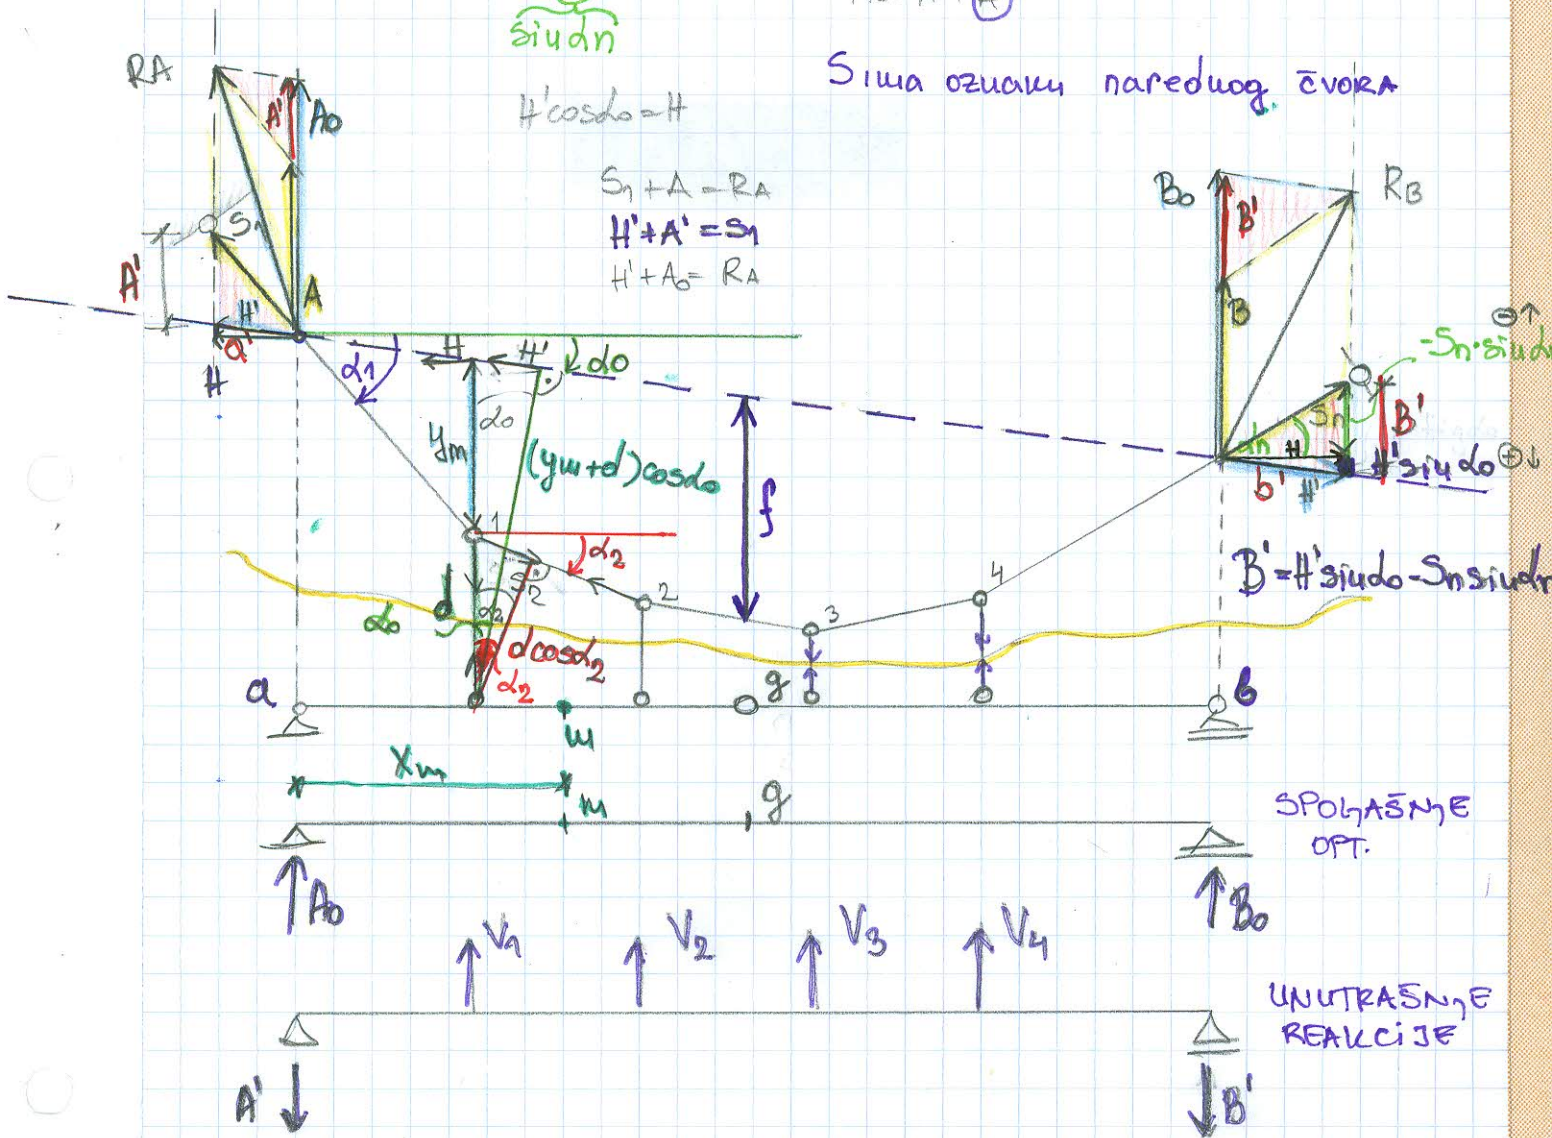 sindn
A
Sima oznaku narednog čvora
RA
A'
A0
H'cosα0=H
S1+A=RA
H'+A'=S1
H'+A0=RA
B0
B'
RB
S1
A'
A
B
H'
a'
H
α1
H
H'
α0
α0
ym
(ym+d)cosα0
f
-Sn·sinαn
αn
H
Sn
B'
H'sinα0
b'
H'
B'=H'sinα0-Snsinαn
1
α2
S2
2
3
4
α0
d
α2
dcosα2
α2
a
g
b
m
xm
m
g
SPOLJAŠNJE
OPT.
A0
B0
V1
V2
V3
V4
UNUTRAŠNJE
REAKCIJE
A'
B'